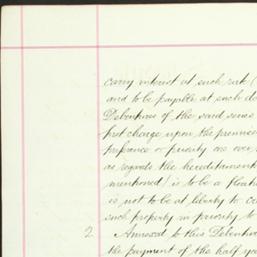 carry interest at such rate (
and to be payable at such da
Debentures of the said series
first charge upon the premises
preference or priority one over
as regards the hereditaments
mentioned) is to be a floati
is not to be at liberty to c
such property in priority to
2 Annexed to this Debentu
the payment of the half ye